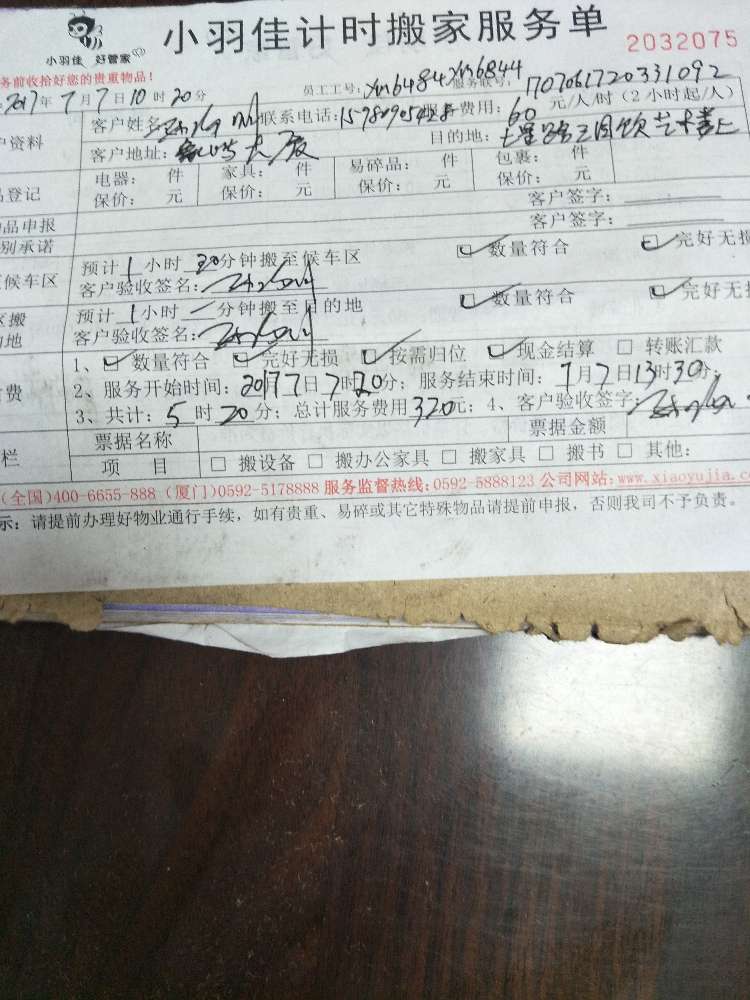 小羽佳计时搬家服务单
2032075
小羽佳 好管家
务前收拾好您的贵重物品!
员工工号: xm6484 xm6844 服务联号: 1707061720331092
2017年7月7日10时20分
户资料 客户姓名: 联系电话: 服务费用: 60 元/人/时(2小时起/人)
客户地址: 大厦 目的地:
品登记 电器: 件 家具: 件 易碎品: 件 包裹: 件
保价: 元 保价: 元 保价: 元 保价: 元
品申报 客户签字:
别承诺 客户签字:
候车区 预计1小时20分钟搬至候车区 ☑数量符合 ☑完好无损
客户验收签名:
区搬 预计1小时一分钟搬至目的地 ☑数量符合 ☑完好无损
的地 客户验收签名:
1、☑数量符合 ☑完好无损 ☑按需归位 ☑现金结算 □转账汇款
费 2、服务开始时间: 2017 7日7时20分; 服务结束时间: 7月7日13时30分;
3、共计: 5时20分; 总计服务费用320元; 4、客户验收签字:
栏 票据名称 票据金额
项 目 □搬设备 □搬办公家具 □搬家具 □搬书 □其他:
(全国)400-6655-888 (厦门)0592-5178888 服务监督热线:0592-5888123 公司网站:www.xiaoyujia.com
示: 请提前办理好物业通行手续,如有贵重、易碎或其它特殊物品请提前申报,否则我司不予负责。